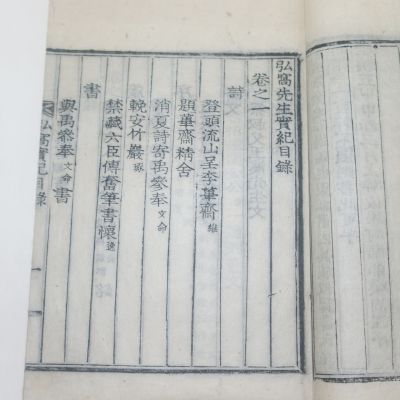 弘窩先生實紀目錄
卷之一
詩
登頭流山呈李篁齋 雄
題篁齋精舍
消夏詩寄禹參奉 文命
輓安竹巖 琢
禁藏六臣傳奮筆書懷
書
與禹參奉 文命 書
弘窩實紀目錄
一